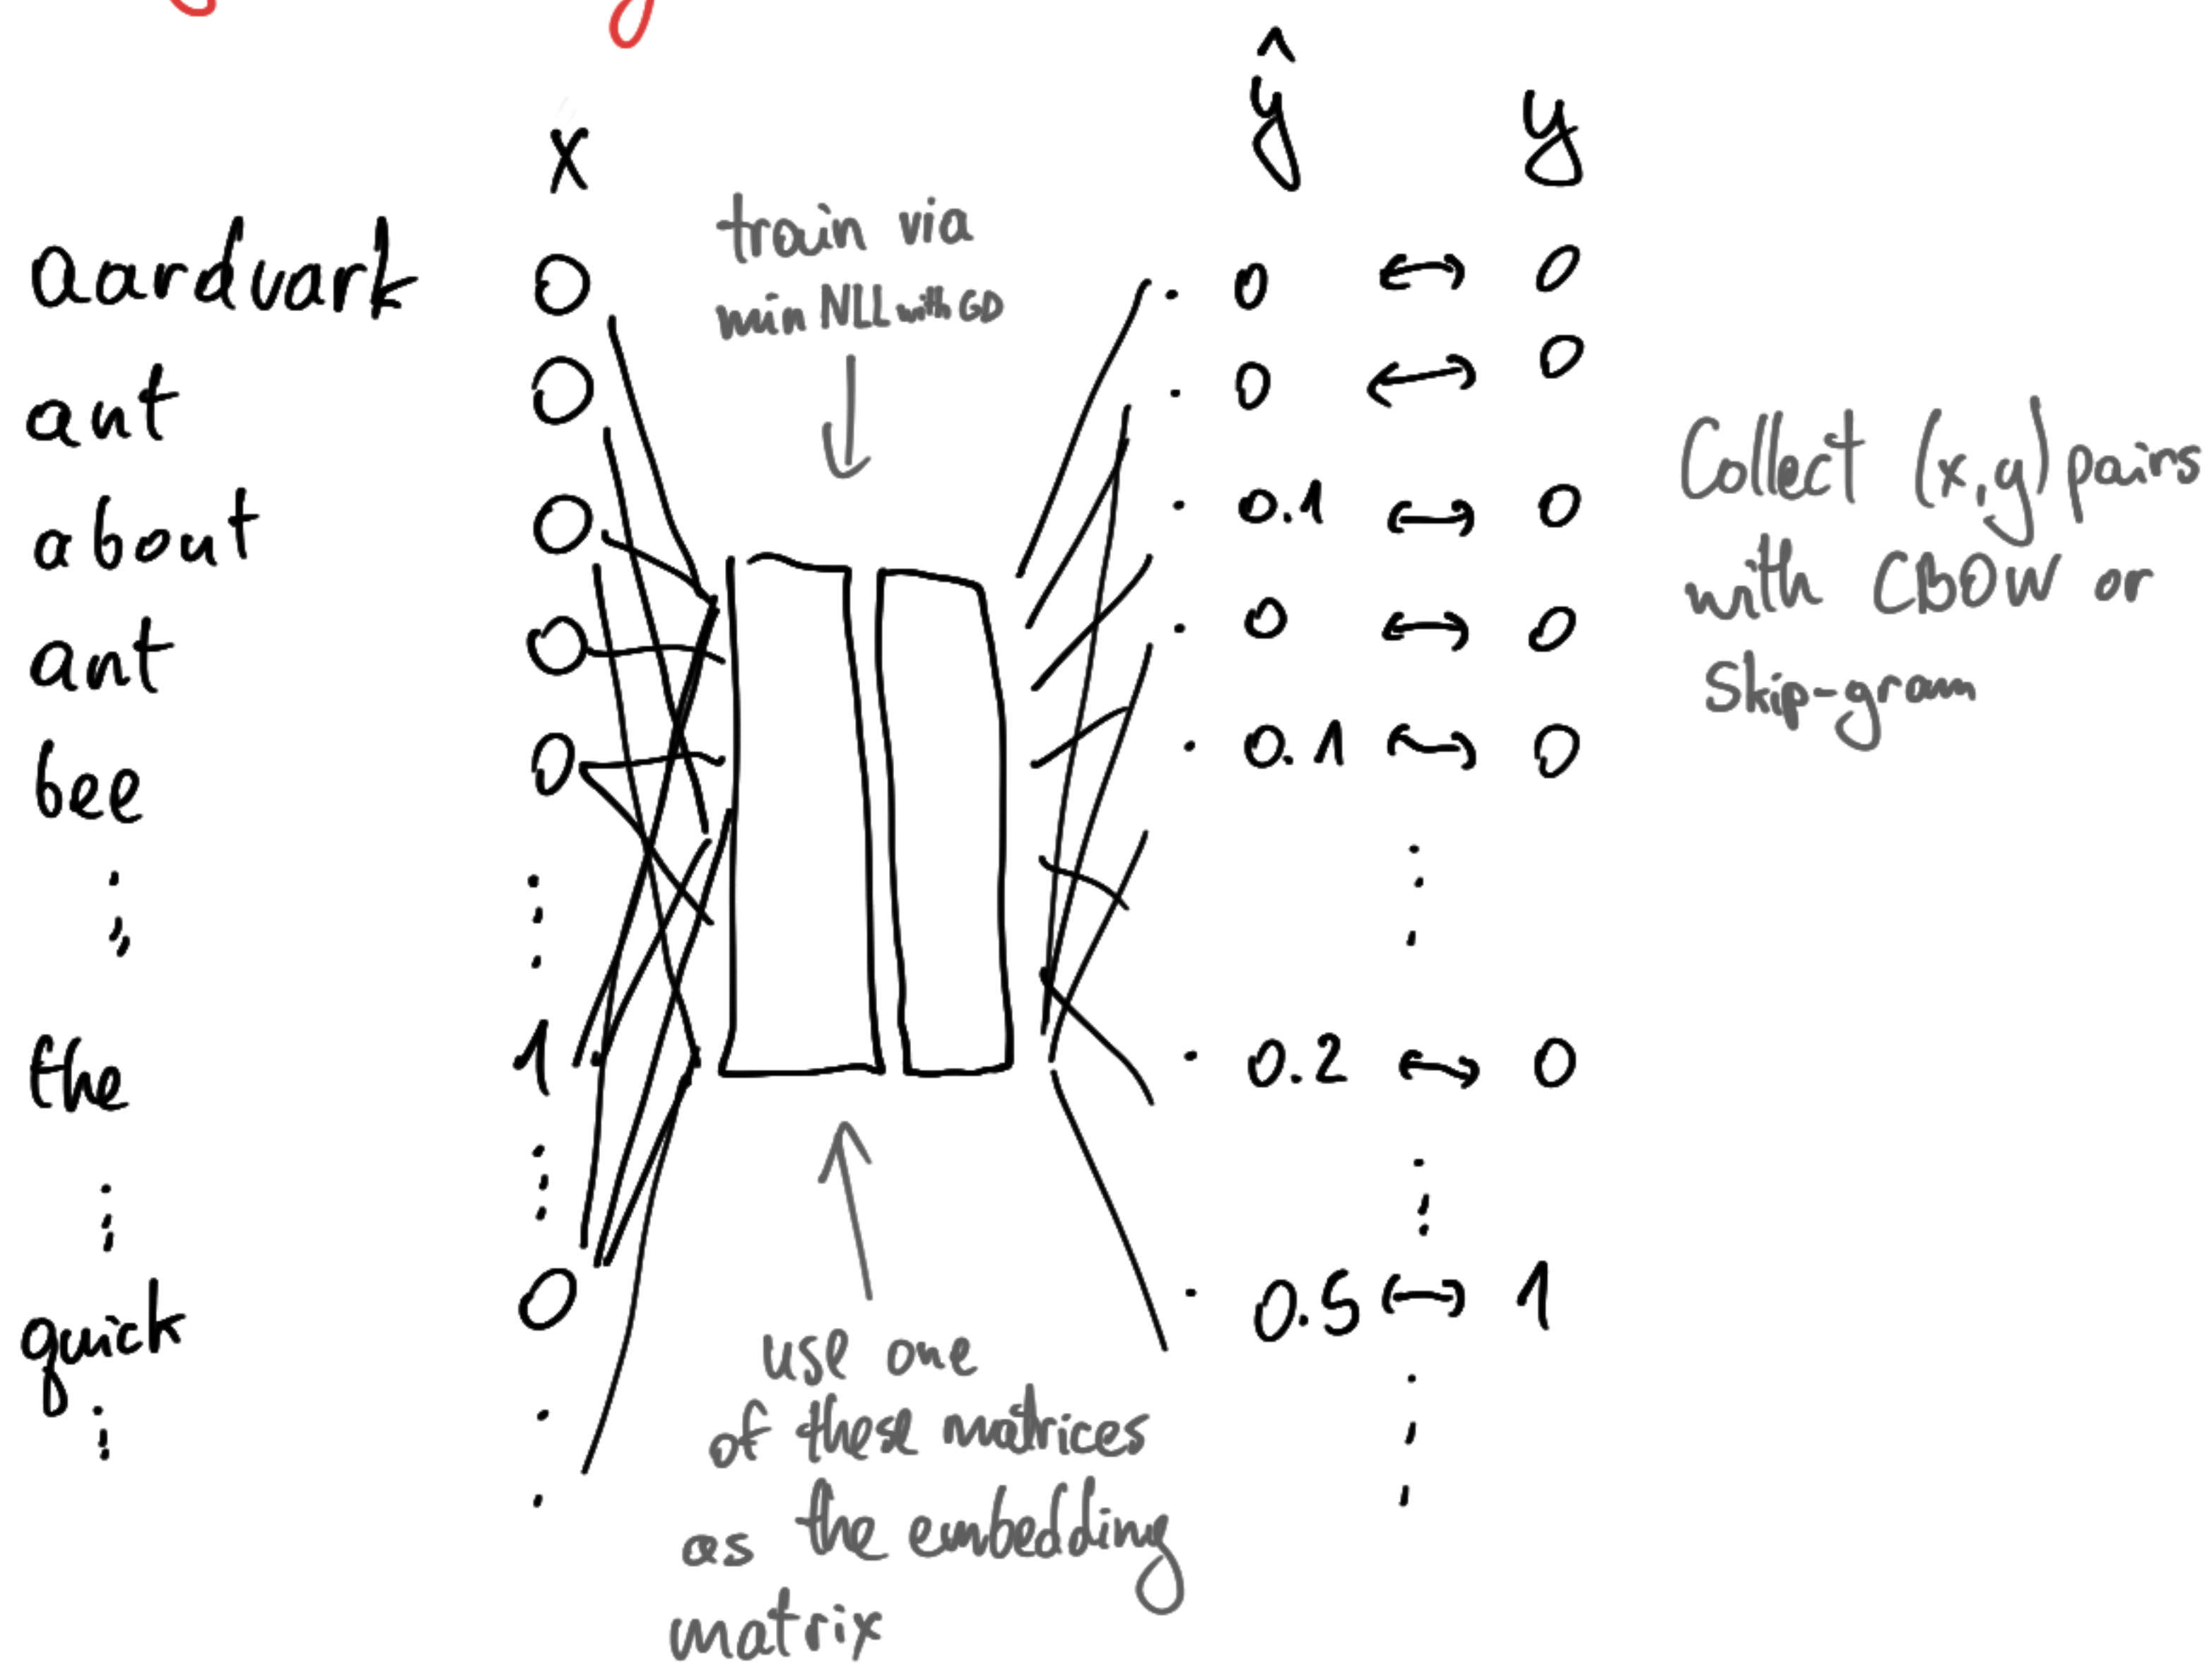 x ŷ y
train via
min NLL with GD
aardvark 0 0 ↔ 0
ant 0 0 ↔ 0
about 0 0.1 ↔ 0
ant 0 0 ↔ 0
bee 0 0.1 ↔ 0
the 1 0.2 ↔ 0
quick 0 0.5 ↔ 1
Collect (x,y) pairs
with CBOW or
Skip-gram
use one
of these matrices
as the embedding
matrix